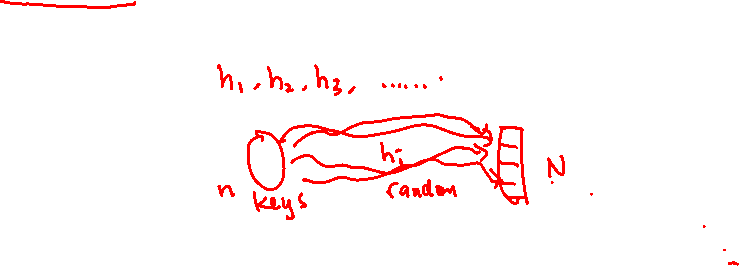 h₁, h₂, h₃, ......
hᵢ
N
n keys random